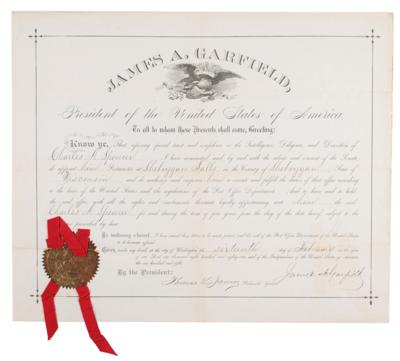 JAMES A. GARFIELD,
President of the United States of America
To all to whom these Presents shall come, Greeting:
Know ye, That reposing special trust and confidence in the Intelligence, Diligence, and Discretion of
Charles Spencer I have nominated, and by and with the advice and consent of the Senate,
do appoint Postmaster at Sheboygan Falls, in the County of Sheboygan, State of
Wisconsin and do authorize and empower to execute and fulfil the duties of that office according
to the laws of the United States and the regulations of the Post Office Department; and to have and to hold
the said office, with all the rights and emoluments thereunto legally appertaining unto the said
Charles Spencer for and during the term of four years from the date hereof subject to the
provided by law
In testimony whereof, I have caused these letters to be made patent, and the seal of the Post Office Department of the United States
to be hereunto affixed.
Given under my hand, at the city of Washington, the sixteenth day of in the year
of our Lord one thousand eight hundred and eighty and of the Independence of the United States of America
the one hundred and
By the President: James A. Garfield
Thomas L. James Postmaster General